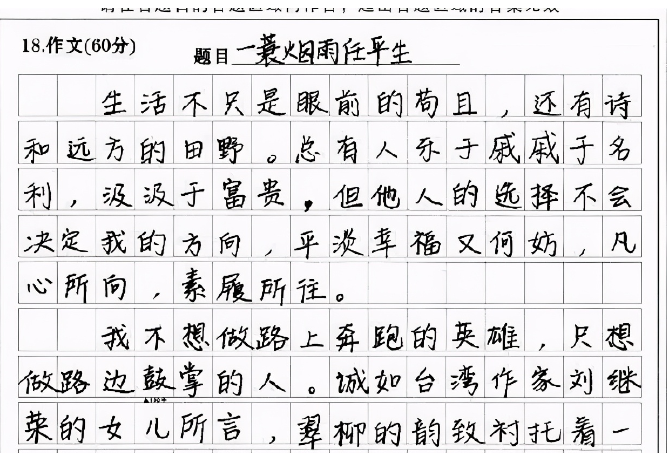 18.作文(60分)
题目 一蓑烟雨任平生
生活不只是眼前的苟且，还有诗
和远方的田野。总有人乐于戚戚于名
利，汲汲于富贵，但他人的选择不会
决定我的方向，平淡幸福又何妨，凡
心所向，素履所往。
我不想做路上奔跑的英雄，只想
做路边鼓掌的人。诚如台湾作家刘继
荣的女儿所言，翠柳的韵致衬托着一